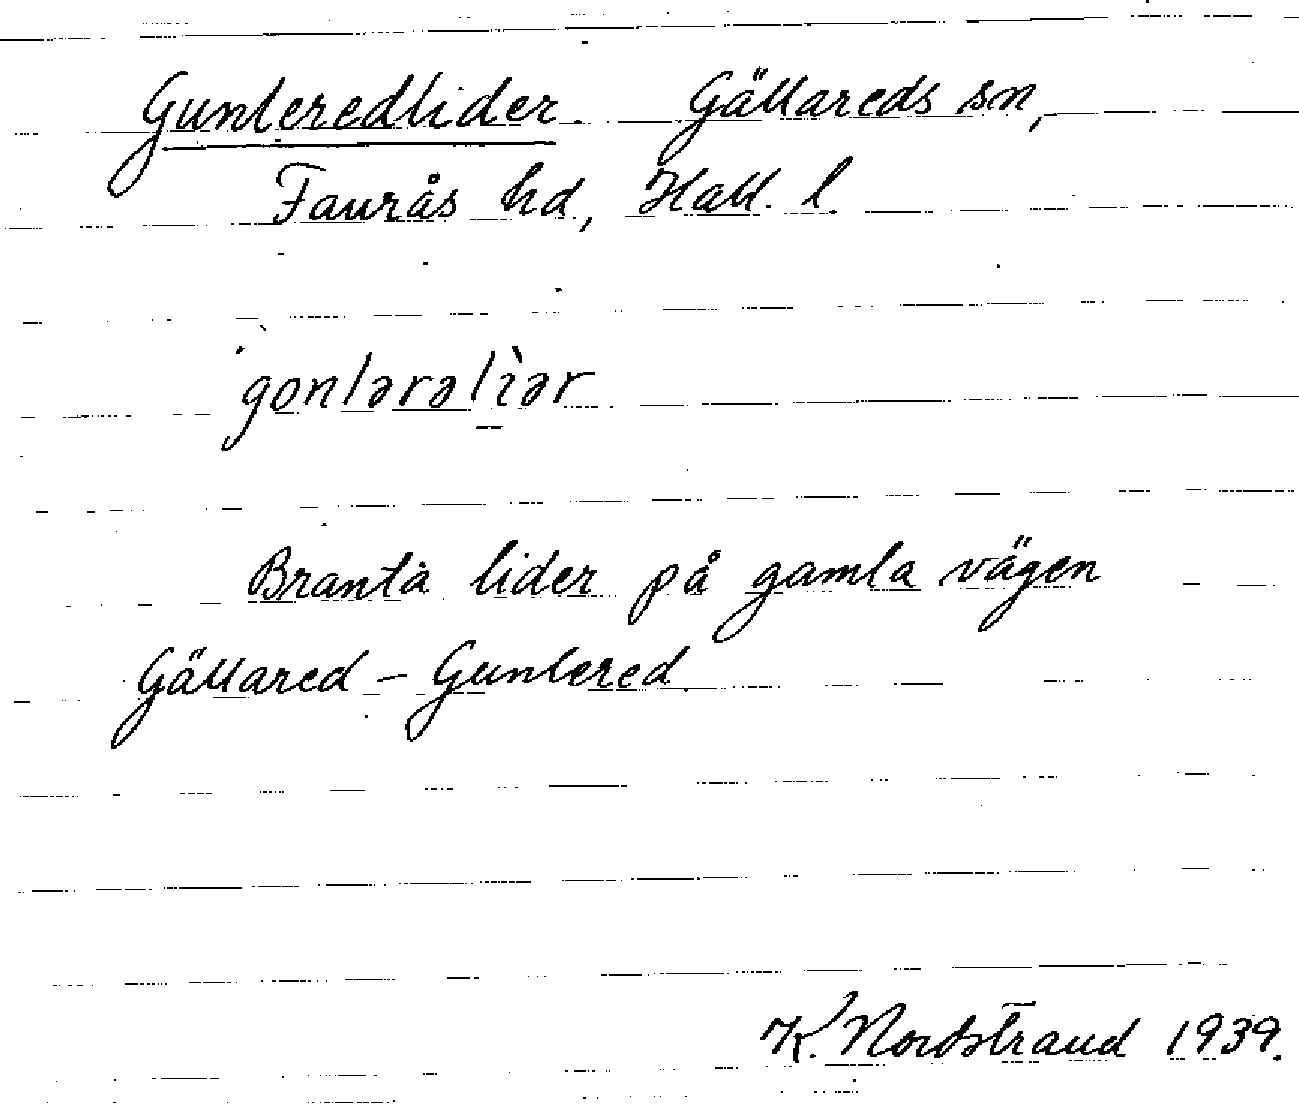 Gunleredlider. Gällareds sn,
Faurås hd, Hall. l.
gonlərəlìər
Branta lider på gamla vägen
Gällared - Gunlered.
K. Nordstrand 1939.